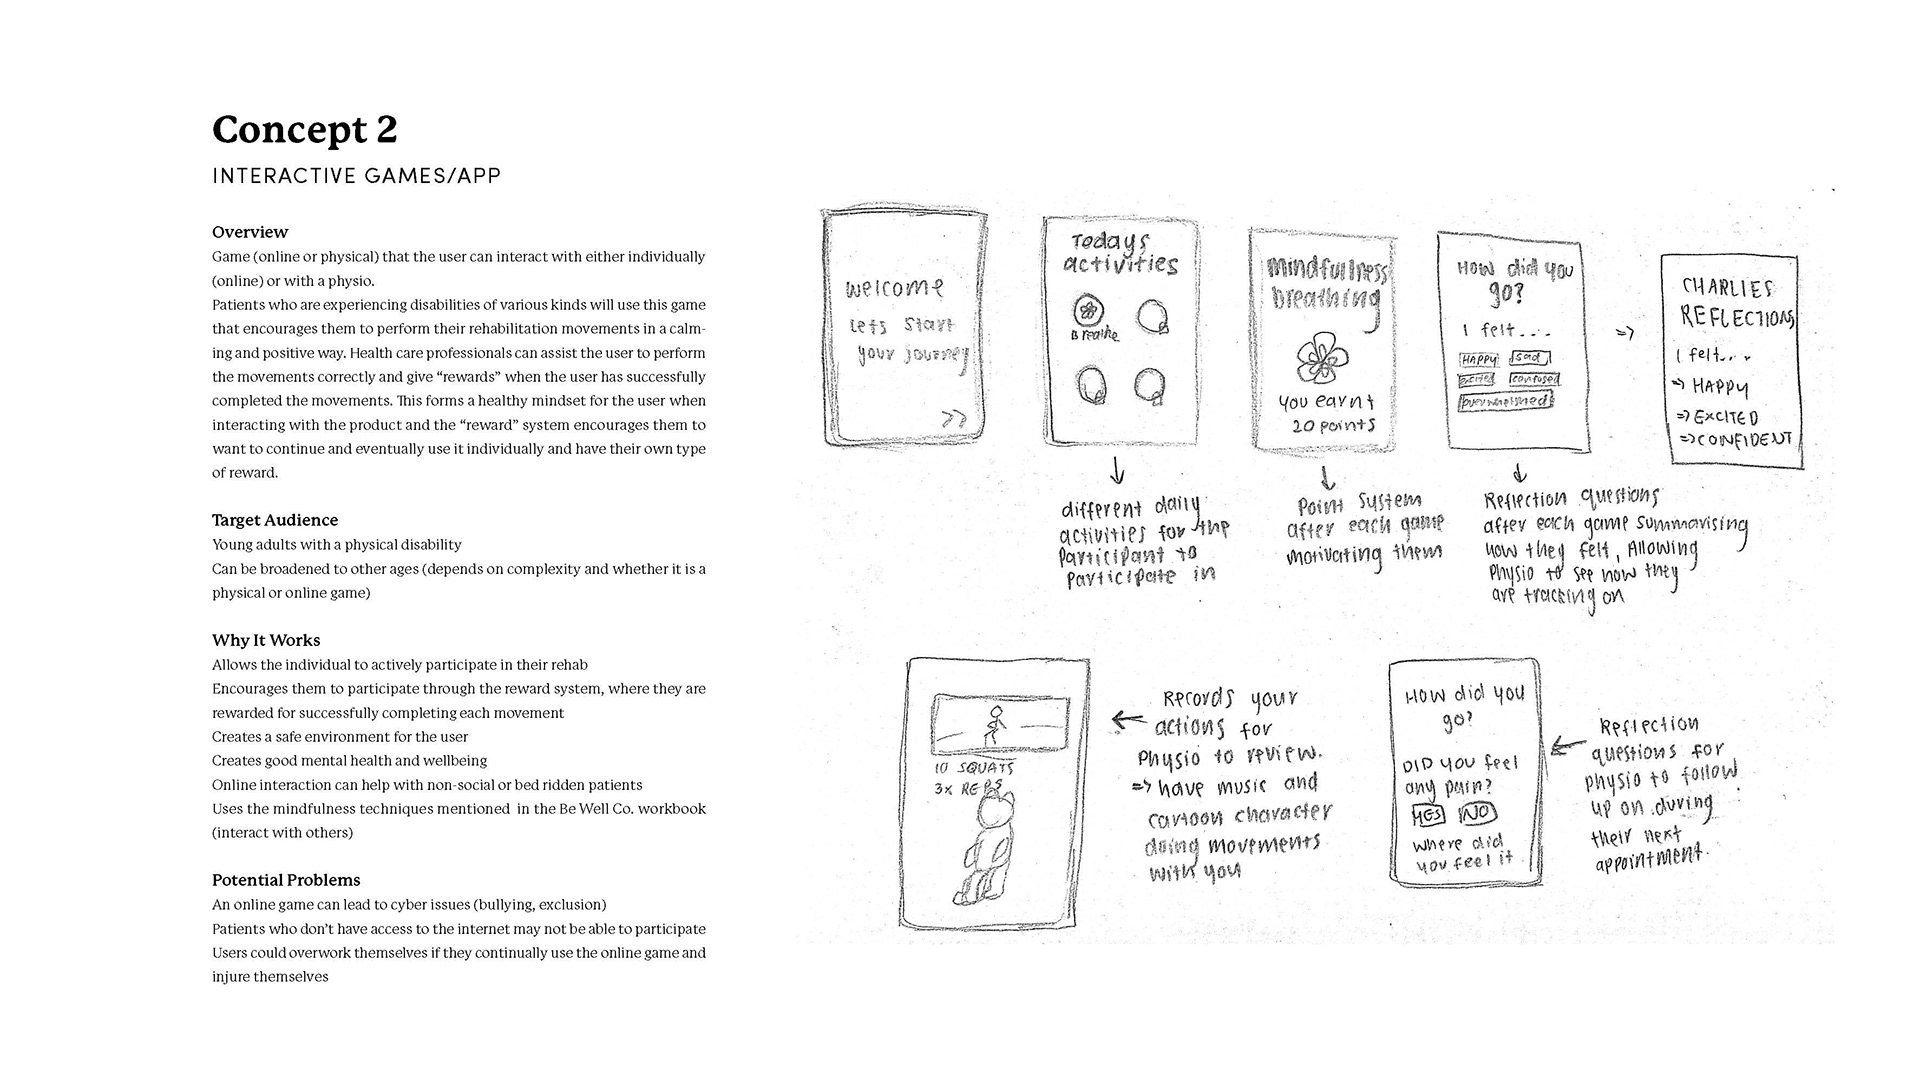 Concept 2
INTERACTIVE GAMES/APP
Overview
Game (online or physical) that the user can interact with either individually
(online) or with a physio.
Patients who are experiencing disabilities of various kinds will use this game
that encourages them to perform their rehabilitation movements in a calm-
ing and positive way. Health care professionals can assist the user to perform
the movements correctly and give “rewards” when the user has successfully
completed the movements. This forms a healthy mindset for the user when
interacting with the product and the “reward” system encourages them to
want to continue and eventually use it individually and have their own type
of reward.
Target Audience
Young adults with a physical disability
Can be broadened to other ages (depends on complexity and whether it is a
physical or online game)
Why It Works
Allows the individual to actively participate in their rehab
Encourages them to participate through the reward system, where they are
rewarded for successfully completing each movement
Creates a safe environment for the user
Creates good mental health and wellbeing
Online interaction can help with non-social or bed ridden patients
Uses the mindfulness techniques mentioned in the Be Well Co. workbook
(interact with others)
Potential Problems
An online game can lead to cyber issues (bullying, exclusion)
Patients who don’t have access to the internet may not be able to participate
Users could overwork themselves if they continually use the online game and
injure themselves
welcome
Lets start
your journey
>>
Todays
activities
Breathe
different daily
activities for the
participant to
participate in
Mindfullness
breathing
you earnt
20 points
Point system
after each game
motivating them
How did you
go?
I felt....
HAPPY sad
excited confused
overwhelmed
Reflection questions
after each game summarising
how they felt, Allowing
Physio to see how they
are tracking on
=>
CHARLIES
REFLECTIONS
I felt....
=> HAPPY
=> EXCITED
=> CONFIDENT
10 SQUATS
3x REPS
Records your
actions for
Physio to review.
=> have music and
cartoon character
doing movements
with you
How did you
go?
DID you feel
any pain?
YES NO
where did
you feel it
Reflection
questions for
physio to follow
up on during
their next
appointment.